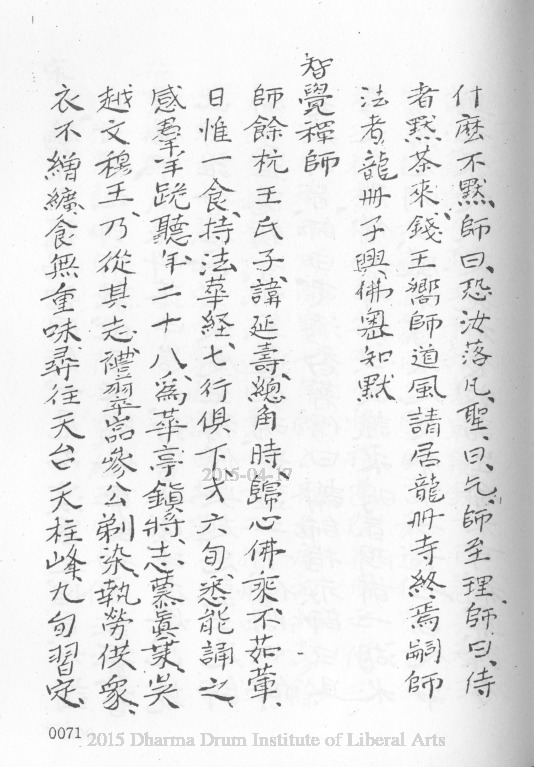 什麼不點、師曰、恐汝落凡聖、曰、乞師至理、師曰、侍
者點茶來、錢王嚮師道風請居龍册寺終焉嗣師
法者、龍册子興、佛嶴知默
智覺禪師
師餘杭王氏子、諱延壽、總角時、歸心佛乘、不茹葷、
日惟一食、持法華経、七行俱下、六旬、悉能誦之、
感羣羊跪聽、年二十八、為華亭鎮將、志慕眞乗、吳
越文穆王、乃從其志、禮翠嵓參公剃染、執勞供衆、
衣不繒纊、食無重味、尋往天台天柱峰九旬習定、
2015-04-17
0071
2015 Dharma Drum Institute of Liberal Arts